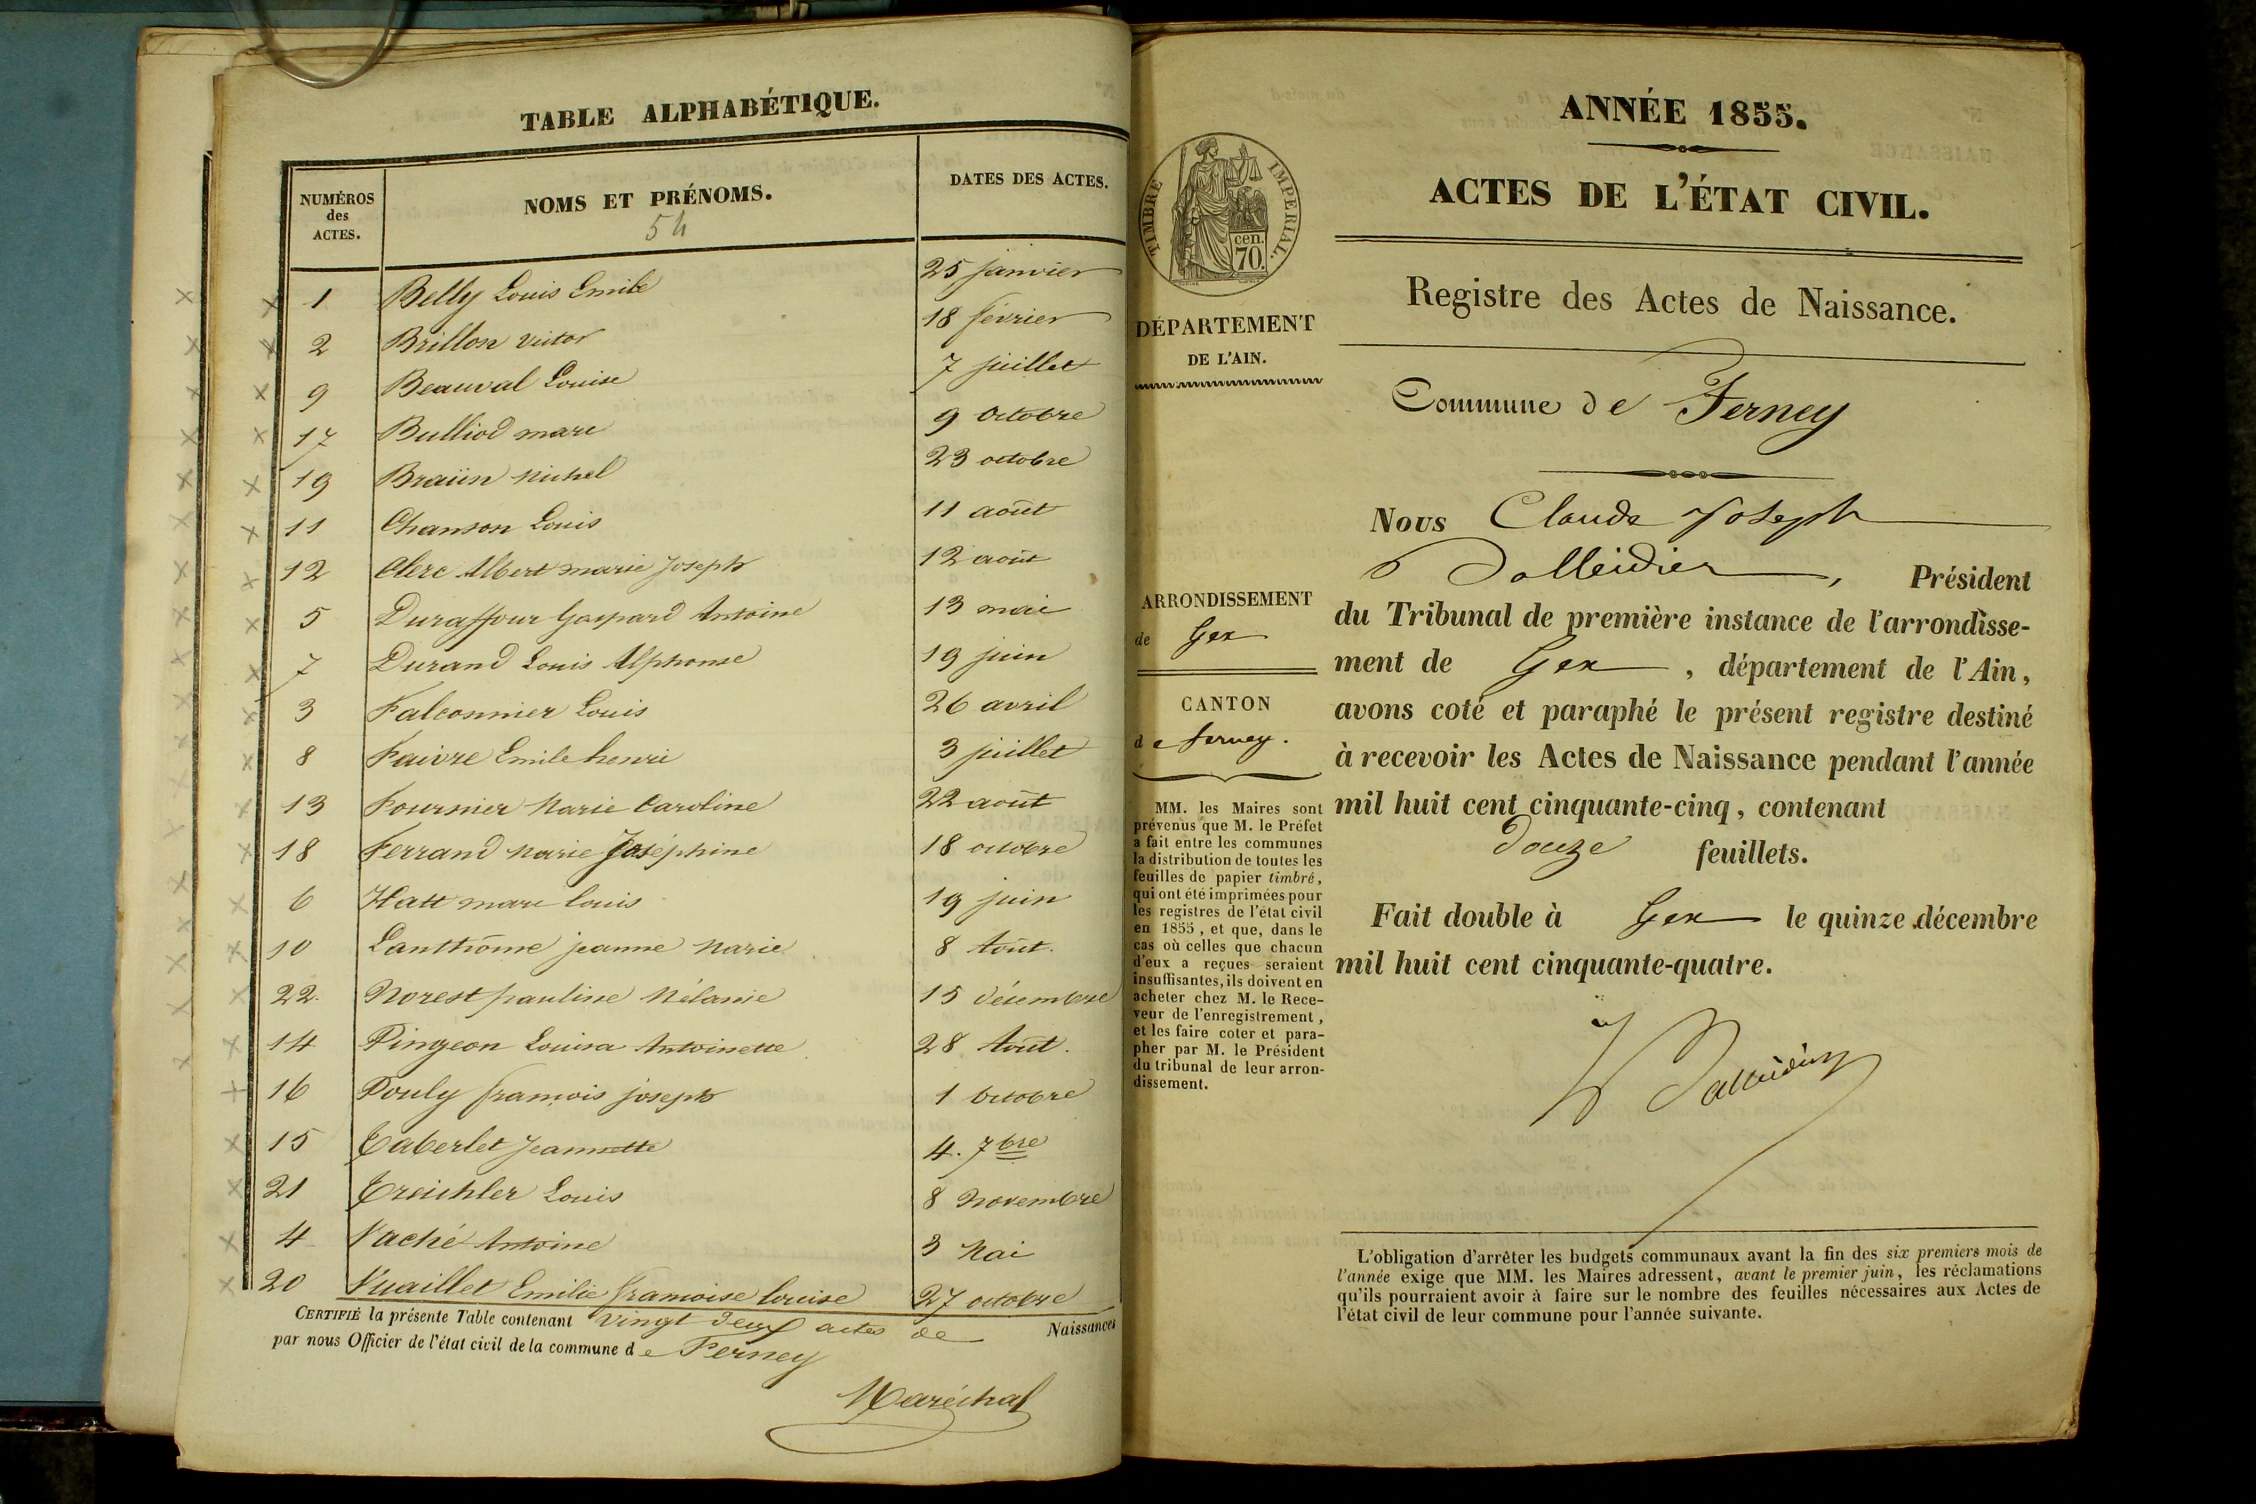 TABLE ALPHABÉTIQUE.
NUMÉROS des ACTES. NOMS ET PRÉNOMS. DATES DES ACTES.
54
1 Belly Louis Emile 25 janvier
2 Brillon Victor 18 février
9 Beauval Louise 7 juillet
17 Bulliod marc 9 Octobre
19 Braün Michel 23 octobre
11 Chanson Louis 11 août
12 Clerc Albert marie Joseph 12 août
5 Duraffour Gaspard Antoine 13 mai
7 Durand Louis Alphonse 19 juin
3 Falconnier Louis 26 avril
8 Faivre Emile henri 3 juillet
13 Fournier Marie Caroline 22 août
18 Ferrand Marie Joséphine 18 octobre
6 Hatt marc louis 19 juin
10 Lanthôme jeanne Marie 8 Août.
22. Norest pauline Mélanie 15 décembre
14 Pingeon Louisa Antoinette 28 Août.
16 Pouly françois joseph 1 Octobre
15 Taberlet Jeannette 4. 7bre
21 Treichler Louis 8 Novembre
4 Vaché Antoine 3 Mai
20 Vuaillet Emilie françoise louise 27 octobre
CERTIFIÉ la présente Table contenant vingt deux actes de Naissances
par nous Officier de l'état civil de la commune de Ferney
Maréchal
ANNÉE 1855.
ACTES DE L'ÉTAT CIVIL.
TIMBRE IMPERIAL.
cen.
70.
Registre des Actes de Naissance.
DÉPARTEMENT
DE L'AIN.
Commune de Ferney
Nous Claude Joseph
Dalleidier, Président
du Tribunal de première instance de l'arrondisse-
ment de Gex, département de l'Ain,
avons coté et paraphé le présent registre destiné
à recevoir les Actes de Naissance pendant l'année
mil huit cent cinquante-cinq, contenant
douze feuillets.
Fait double à Gex le quinze décembre
mil huit cent cinquante-quatre.
ARRONDISSEMENT
de Gex
CANTON
de ferney.
MM. les Maires sont
prévenus que M. le Préfet
a fait entre les communes
la distribution de toutes les
feuilles de papier timbré,
qui ont été imprimées pour
les registres de l'état civil
en 1855, et que, dans le
cas où celles que chacun
d'eux a reçues seraient
insuffisantes, ils doivent en
acheter chez M. le Rece-
veur de l'enregistrement,
et les faire coter et para-
pher par M. le Président
du tribunal de leur arron-
dissement.
L'obligation d'arrêter les budgets communaux avant la fin des six premiers mois de
l'année exige que MM. les Maires adressent, avant le premier juin, les réclamations
qu'ils pourraient avoir à faire sur le nombre des feuilles nécessaires aux Actes de
l'état civil de leur commune pour l'année suivante.